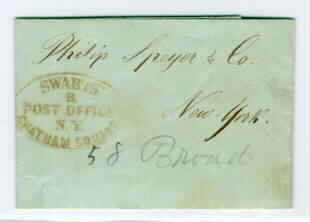 Philip Speyer & Co.
SWARTS'
B.
POST OFFICE
N.Y.
CHATHAM SQUARE
New-York.
58 Broad